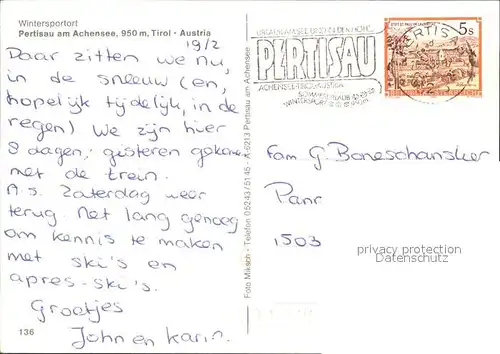 Wintersportort
Pertisau am Achensee, 950 m, Tirol · Austria
19/2
Daar zitten we nu,
in de sneeuw (en,
hopelijk tijdelijk, in de
regen) We zijn hier
8 dagen; gisteren gekomen
met de trein.
A.s. Zaterdag weer
terug. Net lang genoeg
om kennis te maken
met ski's en
apres-ski's.
Groetjes
John en Karin.
136
Foto Miksch - Telefon 05243/5145 - A-6213 Pertisau am Achensee
PERTISAU
ACHENSEE-TIROL-AUSTRIA
SOMMERURLAUB
WINTERSPORT
PERTIS
5 S
Fam G. Boneschansker
Panr
1503
privacy protection
Datenschutz